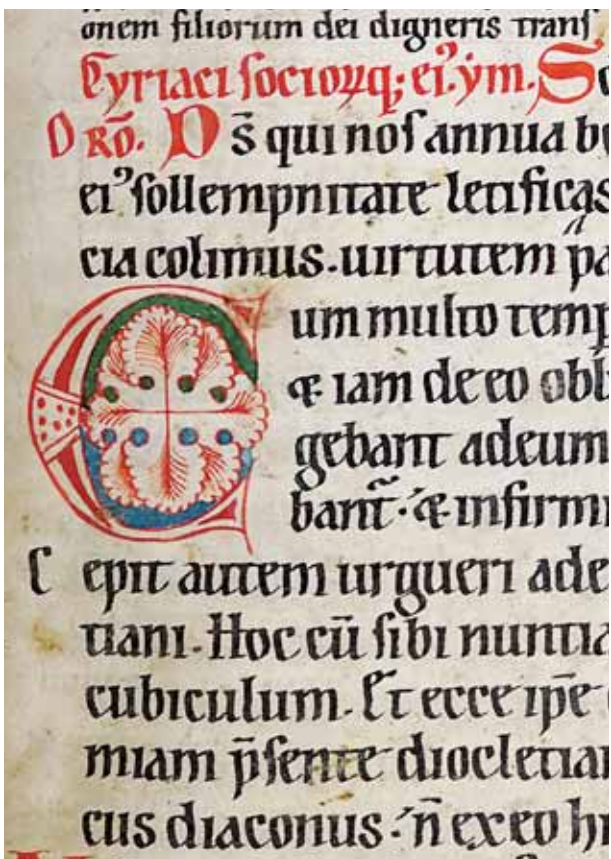 onem filiorum dei digneris trans
Cyriaci socioꝝq; ei'. ym. S
ORO. Ds̄ qui nos annua b
ei' sollempnitate letificas
cia colimus. uirtutem pa
Cum multo temp
& iam de eo obl
gebant ad eum
bant. & infirmi
Cepit autem urgueri a de
tiani. Hoc cū sibi nuntia
cubiculum. Et ecce ip̄e
miam p̄sente diocletian
cus diaconus. n̄ exeo hi